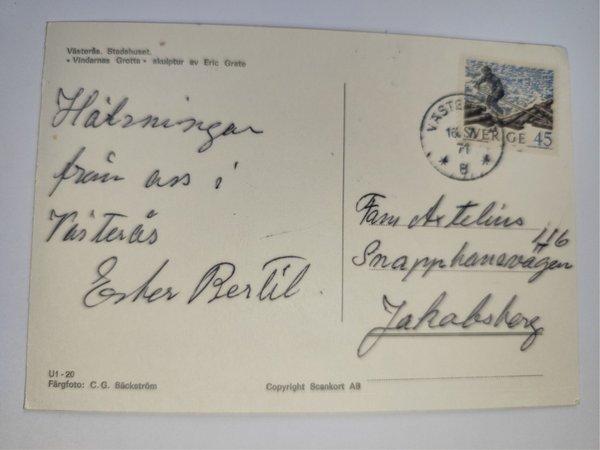 Västerås. Stadshuset.
« Vindarnas Grotta » skulptur av Eric Grate
SVERIGE 45
VÄSTE
71
Hälsningar
från oss i
Västerås
Ester Bertil
Fam Axtelius
116
Snapphanevägen
Jakobsberg
U1-20
Färgfoto: C. G. Bäckström
Copyright Scankort AB